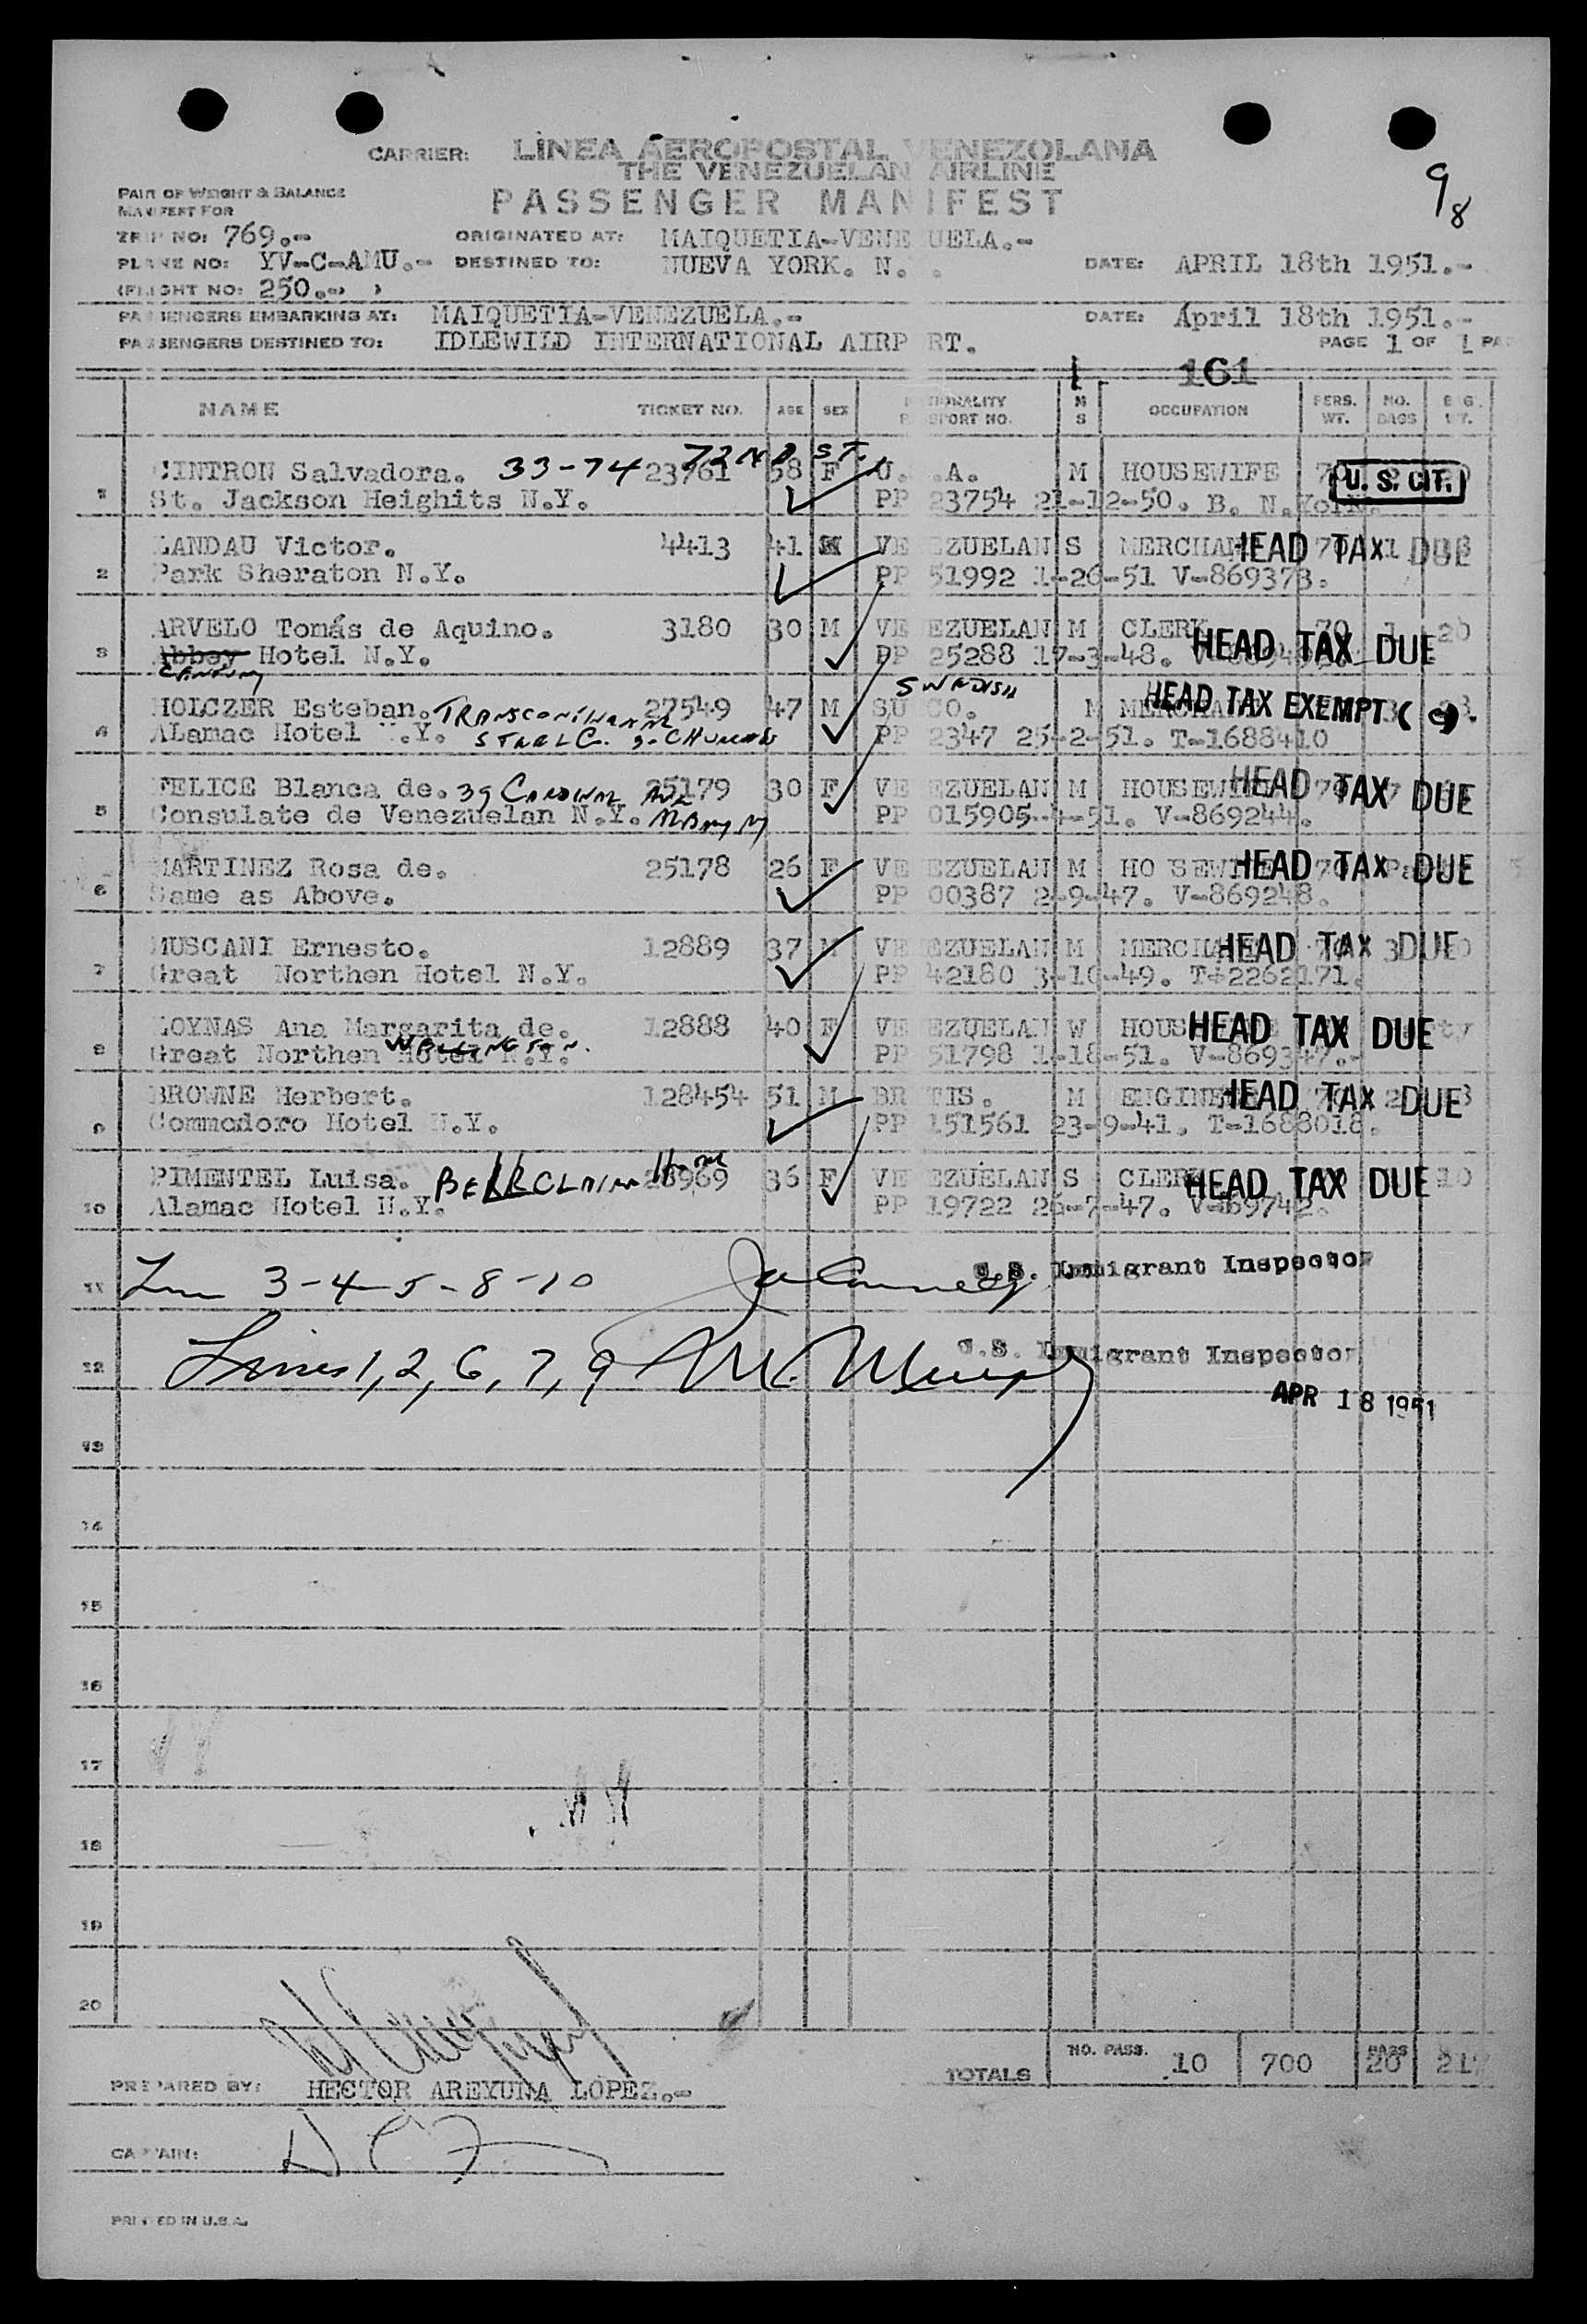 CARRIER: LINEA AEROPOSTAL VENEZOLANA
THE VENEZUELAN AIRLINE
PASSENGER MANIFEST
98
PART OF WEIGHT & BALANCE
MANIFEST FOR
TRIP NO: 769.-
ORIGINATED AT: MAIQUETIA-VENE UELA.-
PLANE NO: YV-C-AMU.-
DESTINED TO: NUEVA YORK. N. .
DATE: APRIL 18th 1951.-
(FLIGHT NO: 250.-)
PASSENGERS EMBARKING AT: MAIQUETIA-VENEZUELA.-
DATE: April 18th 1951.-
PASSENGERS DESTINED TO: IDLEWILD INTERNATIONAL AIRP RT.
PAGE 1 OF 1 PA
161
NAME TICKET NO. AGE SEX NATIONALITY PASSPORT NO. M S OCCUPATION PERS. WT. NO. BAGS BAG. WT.
CINTRON Salvadora. 33-74 72ND ST. 23761 58 F U. .A. M HOUSEWIFE U.S. CIT.
1 St. Jackson Heighits N.Y. PP 23754 21-12-50. B. N.York.
LANDAU Victor. 4413 41 M VE EZUELAN S MERCHAN HEAD TAX DUE
2 Park Sheraton N.Y. PP 51992 1-26-51 V-869373.
ARVELO Tomás de Aquino. 3180 30 M VE EZUELAN M CLERK 70 1 20
3 Abbey Hotel N.Y. PP 25288 17-3-48. HEAD TAX DUE
SWEDISH
HOLCZER Esteban. 27549 47 M SU CO. M MERCHA HEAD TAX EXEMPT (9).
4 ALamac Hotel .Y. PP 2347 25-2-51. T-1688410
FELICE Blanca de. 39 25179 30 F VE EZUELAN M HOUSEWI HEAD TAX DUE
5 Consulate de Venezuelan N.Y. PP 015905 -4-51. V-869244.
MARTINEZ Rosa de. 25178 26 F VE EZUELAN M HO SEWI HEAD TAX DUE
6 Same as Above. PP 00387 2-9-47. V-869248.
MUSCANI Ernesto. 12889 37 M VE EZUELAN M MERCHA HEAD TAX DUE
7 Great Northen Hotel N.Y. PP 42180 3-10-49. T-2262171.
LOYNAS Ana Margarita de. 12888 40 F VE EZUELAN W HOUS HEAD TAX DUE
WELLINGTON.
8 Great Northen Hotel N.Y. PP 51798 1-18-51. V-869347.-
BROWNE Herbert. 128454 51 M BR TIS. M ENGINE HEAD TAX DUE
9 Commodoro Hotel N.Y. PP 151561 23-9-41. T-1688018.
PIMENTEL Luisa. 28969 36 F VE EZUELAN S CLER HEAD TAX DUE
10 Alamac Hotel N.Y. PP 19722 26-7-47. V-69742.
11 3-4-5-8-10 U.S. Immigrant Inspector
12 Lines 1, 2, 6, 7, 9 U.S. Immigrant Inspector
APR 18 1951
13
14
15
16
17
18
19
20
TOTALS NO. PASS. 10 700 BAGS 20 217
PREPARED BY: HECTOR AREYUNA LOPEZ.-
CAPTAIN:
PRINTED IN U.S.A.